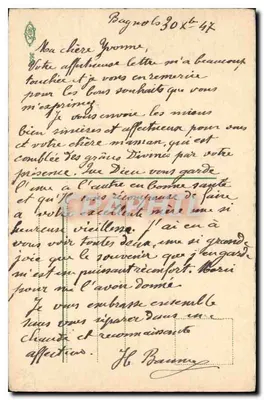 Bagnols 30 Xbre 47
Ma chère Yvonne,
Votre affectueuse lettre m'a beaucoup
touchée et je vous en remercie
pour les bons souhaits que vous
m'exprimez
Je vous envoie les miens
bien sincères et affectueux pour vous
et votre chère maman, qui est
comblée des grâces divines par votre
présence. Que Dieu vous garde
l'une à l'autre en bonne santé
et qu'il vous récompense de faire
à votre excellente mère une si
heureuse vieillesse. J'ai eu à
vous voir toutes deux, une si grande
joie que le souvenir que j'en garde
m'est un puissant réconfort. Merci
pour me l'avoir donné
Je vous embrasse ensemble
sans vous séparer dans une
chaude et reconnaissante
affection.